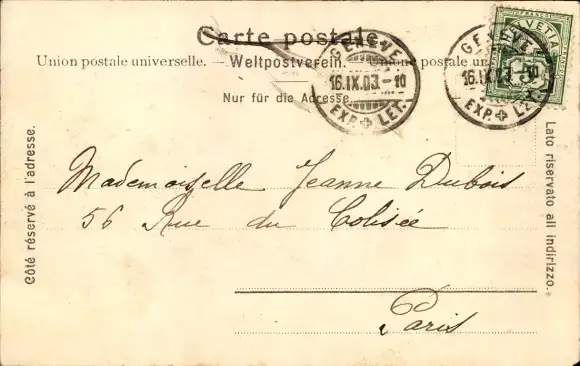 Carte postale.
Union postale universelle. — Weltpostverein. — Unione postale un
Nur für die Adresse.
GENÈVE
16.IX.03.-10
EXP. LET.
GENÈVE
16.IX.03.-10
EXP. L
HELVETIA
Côté réservé à l'adresse.
Lato riservato all indirizzo.
Mademoiselle Jeanne Dubois
56 Rue du Colisée
Paris